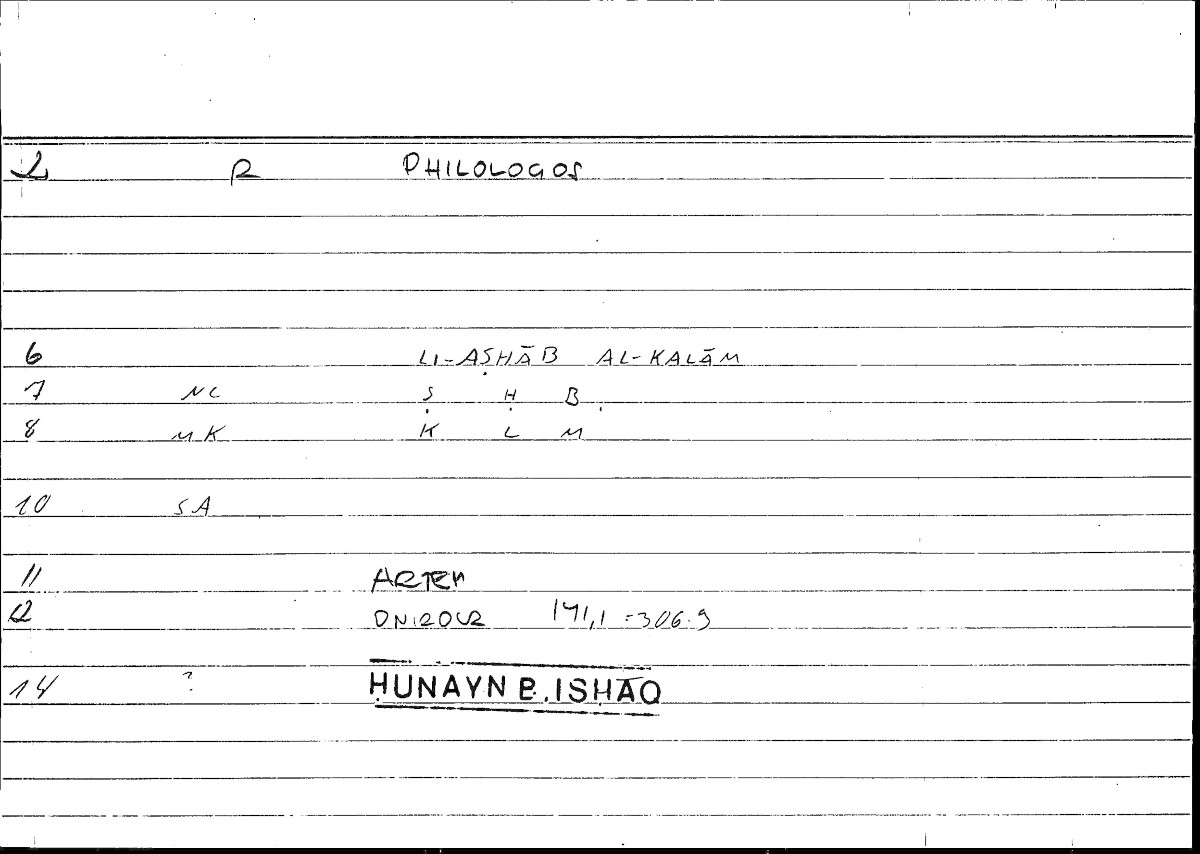 2 R PHILOLOGOS
6 LI-AṢHĀB AL-KALĀM
7 NC Ṣ Ḥ B
8 MK K L M
10 SA
11 ARTEM
12 ONIROCR 141,1 = 306.9
14 ? ḤUNAYN B. ISḤĀQ